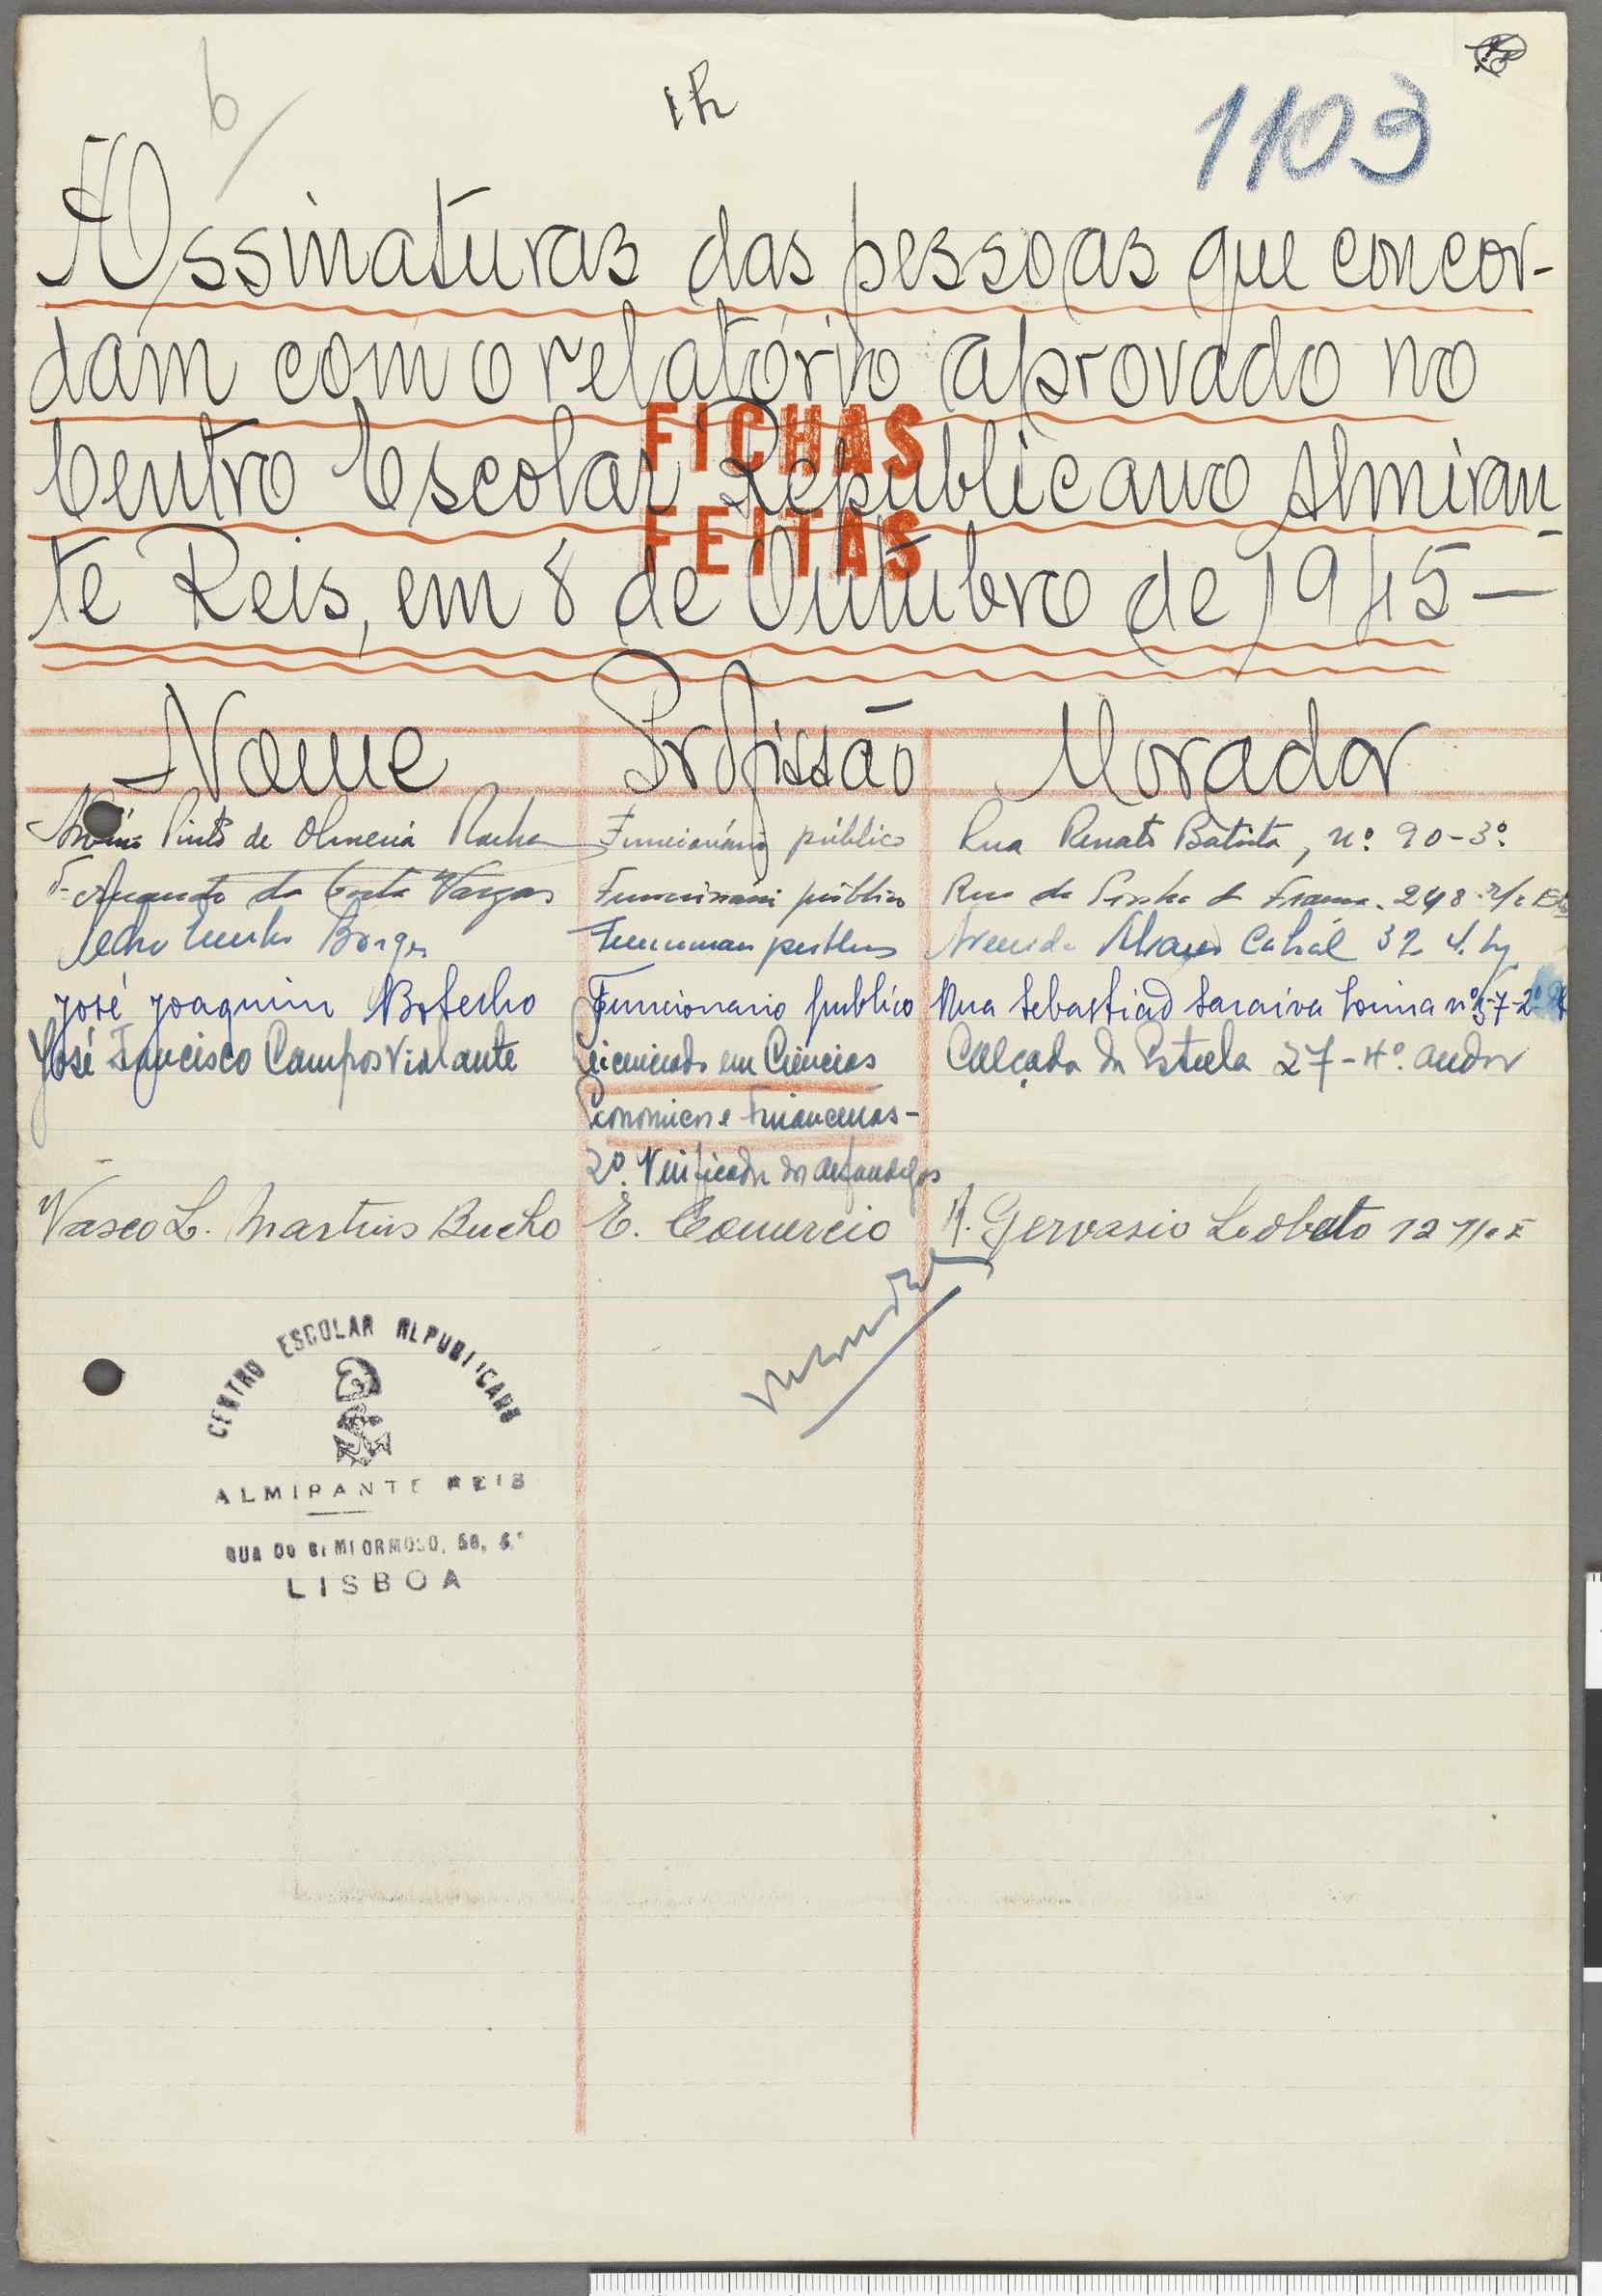 1103
Assinaturas das pessoas que concor-
dam com o relatório aprovado no
Centro Escolar Republicano Almiran-
te Reis, em 8 de Outubro de 1945 —
FICHAS
FEITAS
Nome Profissão Morador
Pinto de Almeida Rocha Funcionário público Rua Renato Batista, nº. 90-3º.
Augusto da Costa Vargas Funcionário público Rua da Penha de França. 248
Borges Avenida Alvares Cabral 32 4.
José Joaquim Botelho Funcionario publico Rua Sebastião Saraiva Lima nº
José Francisco Campos Violante Licenciado em Ciências Calçada da Estrela 27-4º. andar
Economicas e Financeiras-
2º. Verificador das Alfandegas
Vasco L. Martins Bucho E. Comercio R. Gervasio Lobato 12
CENTRO ESCOLAR REPUBLICANO
ALMIRANTE REIS
RUA DO BEMFORMOSO, 50,
LISBOA